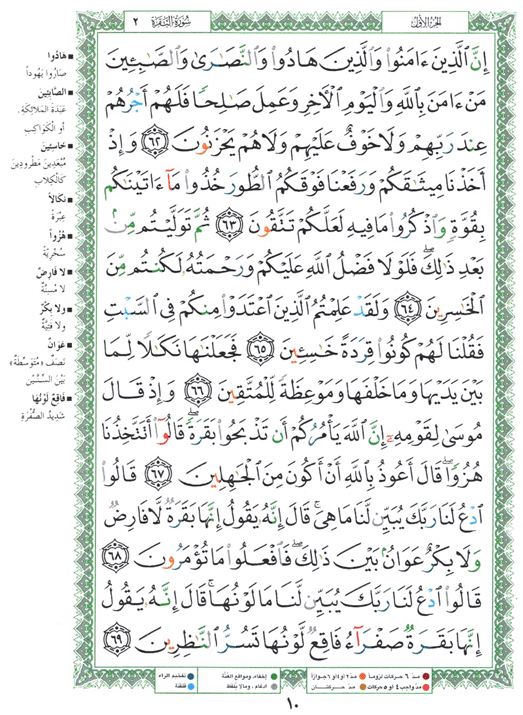 الجزء الأول
سورة البقرة ٢
إِنَّ الَّذِينَ ءَامَنُوا وَالَّذِينَ هَادُوا وَالنَّصَارَىٰ وَالصَّابِئِينَ
مَنْ ءَامَنَ بِاللَّهِ وَالْيَوْمِ الْآخِرِ وَعَمِلَ صَالِحًا فَلَهُمْ أَجْرُهُمْ
عِندَ رَبِّهِمْ وَلَا خَوْفٌ عَلَيْهِمْ وَلَا هُمْ يَحْزَنُونَ ٦٢ وَإِذْ
أَخَذْنَا مِيثَاقَكُمْ وَرَفَعْنَا فَوْقَكُمُ الطُّورَ خُذُوا مَا ءَاتَيْنَاكُم
بِقُوَّةٍ وَاذْكُرُوا مَا فِيهِ لَعَلَّكُمْ تَتَّقُونَ ٦٣ ثُمَّ تَوَلَّيْتُم مِّن
بَعْدِ ذَٰلِكَ ۖ فَلَوْلَا فَضْلُ اللَّهِ عَلَيْكُمْ وَرَحْمَتُهُ لَكُنتُم مِّنَ
الْخَاسِرِينَ ٦٤ وَلَقَدْ عَلِمْتُمُ الَّذِينَ اعْتَدَوْا مِنكُمْ فِي السَّبْتِ
فَقُلْنَا لَهُمْ كُونُوا قِرَدَةً خَاسِئِينَ ٦٥ فَجَعَلْنَاهَا نَكَالًا لِّمَا
بَيْنَ يَدَيْهَا وَمَا خَلْفَهَا وَمَوْعِظَةً لِّلْمُتَّقِينَ ٦٦ وَإِذْ قَالَ
مُوسَىٰ لِقَوْمِهِ إِنَّ اللَّهَ يَأْمُرُكُمْ أَن تَذْبَحُوا بَقَرَةً ۖ قَالُوا أَتَتَّخِذُنَا
هُزُوًا ۖ قَالَ أَعُوذُ بِاللَّهِ أَنْ أَكُونَ مِنَ الْجَاهِلِينَ ٦٧ قَالُوا
ادْعُ لَنَا رَبَّكَ يُبَيِّن لَّنَا مَا هِيَ ۚ قَالَ إِنَّهُ يَقُولُ إِنَّهَا بَقَرَةٌ لَّا فَارِضٌ
وَلَا بِكْرٌ عَوَانٌ بَيْنَ ذَٰلِكَ ۖ فَافْعَلُوا مَا تُؤْمَرُونَ ٦٨
قَالُوا ادْعُ لَنَا رَبَّكَ يُبَيِّن لَّنَا مَا لَوْنُهَا ۚ قَالَ إِنَّهُ يَقُولُ
إِنَّهَا بَقَرَةٌ صَفْرَاءُ فَاقِعٌ لَّوْنُهَا تَسُرُّ النَّاظِرِينَ ٦٩
هَادُوا
صَارُوا يَهُوداً
الصَّابِئِينَ
عَبَدَةَ المَلَائِكَةِ
أَوِ الكَوَاكِبِ
خَاسِئِينَ
مُبْعَدِينَ مَطْرُودِينَ
كَالكِلَابِ
نَكَالاً
عِبْرَةً
هُزُواً
سُخْرِيَةً
لا فَارِضٌ
لا مُسِنَّةٌ
ولا بِكْرٌ
ولا فَتِيَّةٌ
عَوَانٌ
نَصَفٌ «مُتَوَسِّطَةٌ»
بَيْنَ السِّنَّيْنِ
فَاقِعٌ لَوْنُهَا
شَدِيدُ الصُّفْرَةِ
مدّ ٦ حركات لزوماً مدّ ٢ أو ٤ أو ٦ جوازاً
مدّ واجب ٤ أو ٥ حركات مدّ حركتان
إخفاء، ومواقع الغنّة
ادغام، وما لا يلفظ
تفخيم الراء
قلقلة
١٠